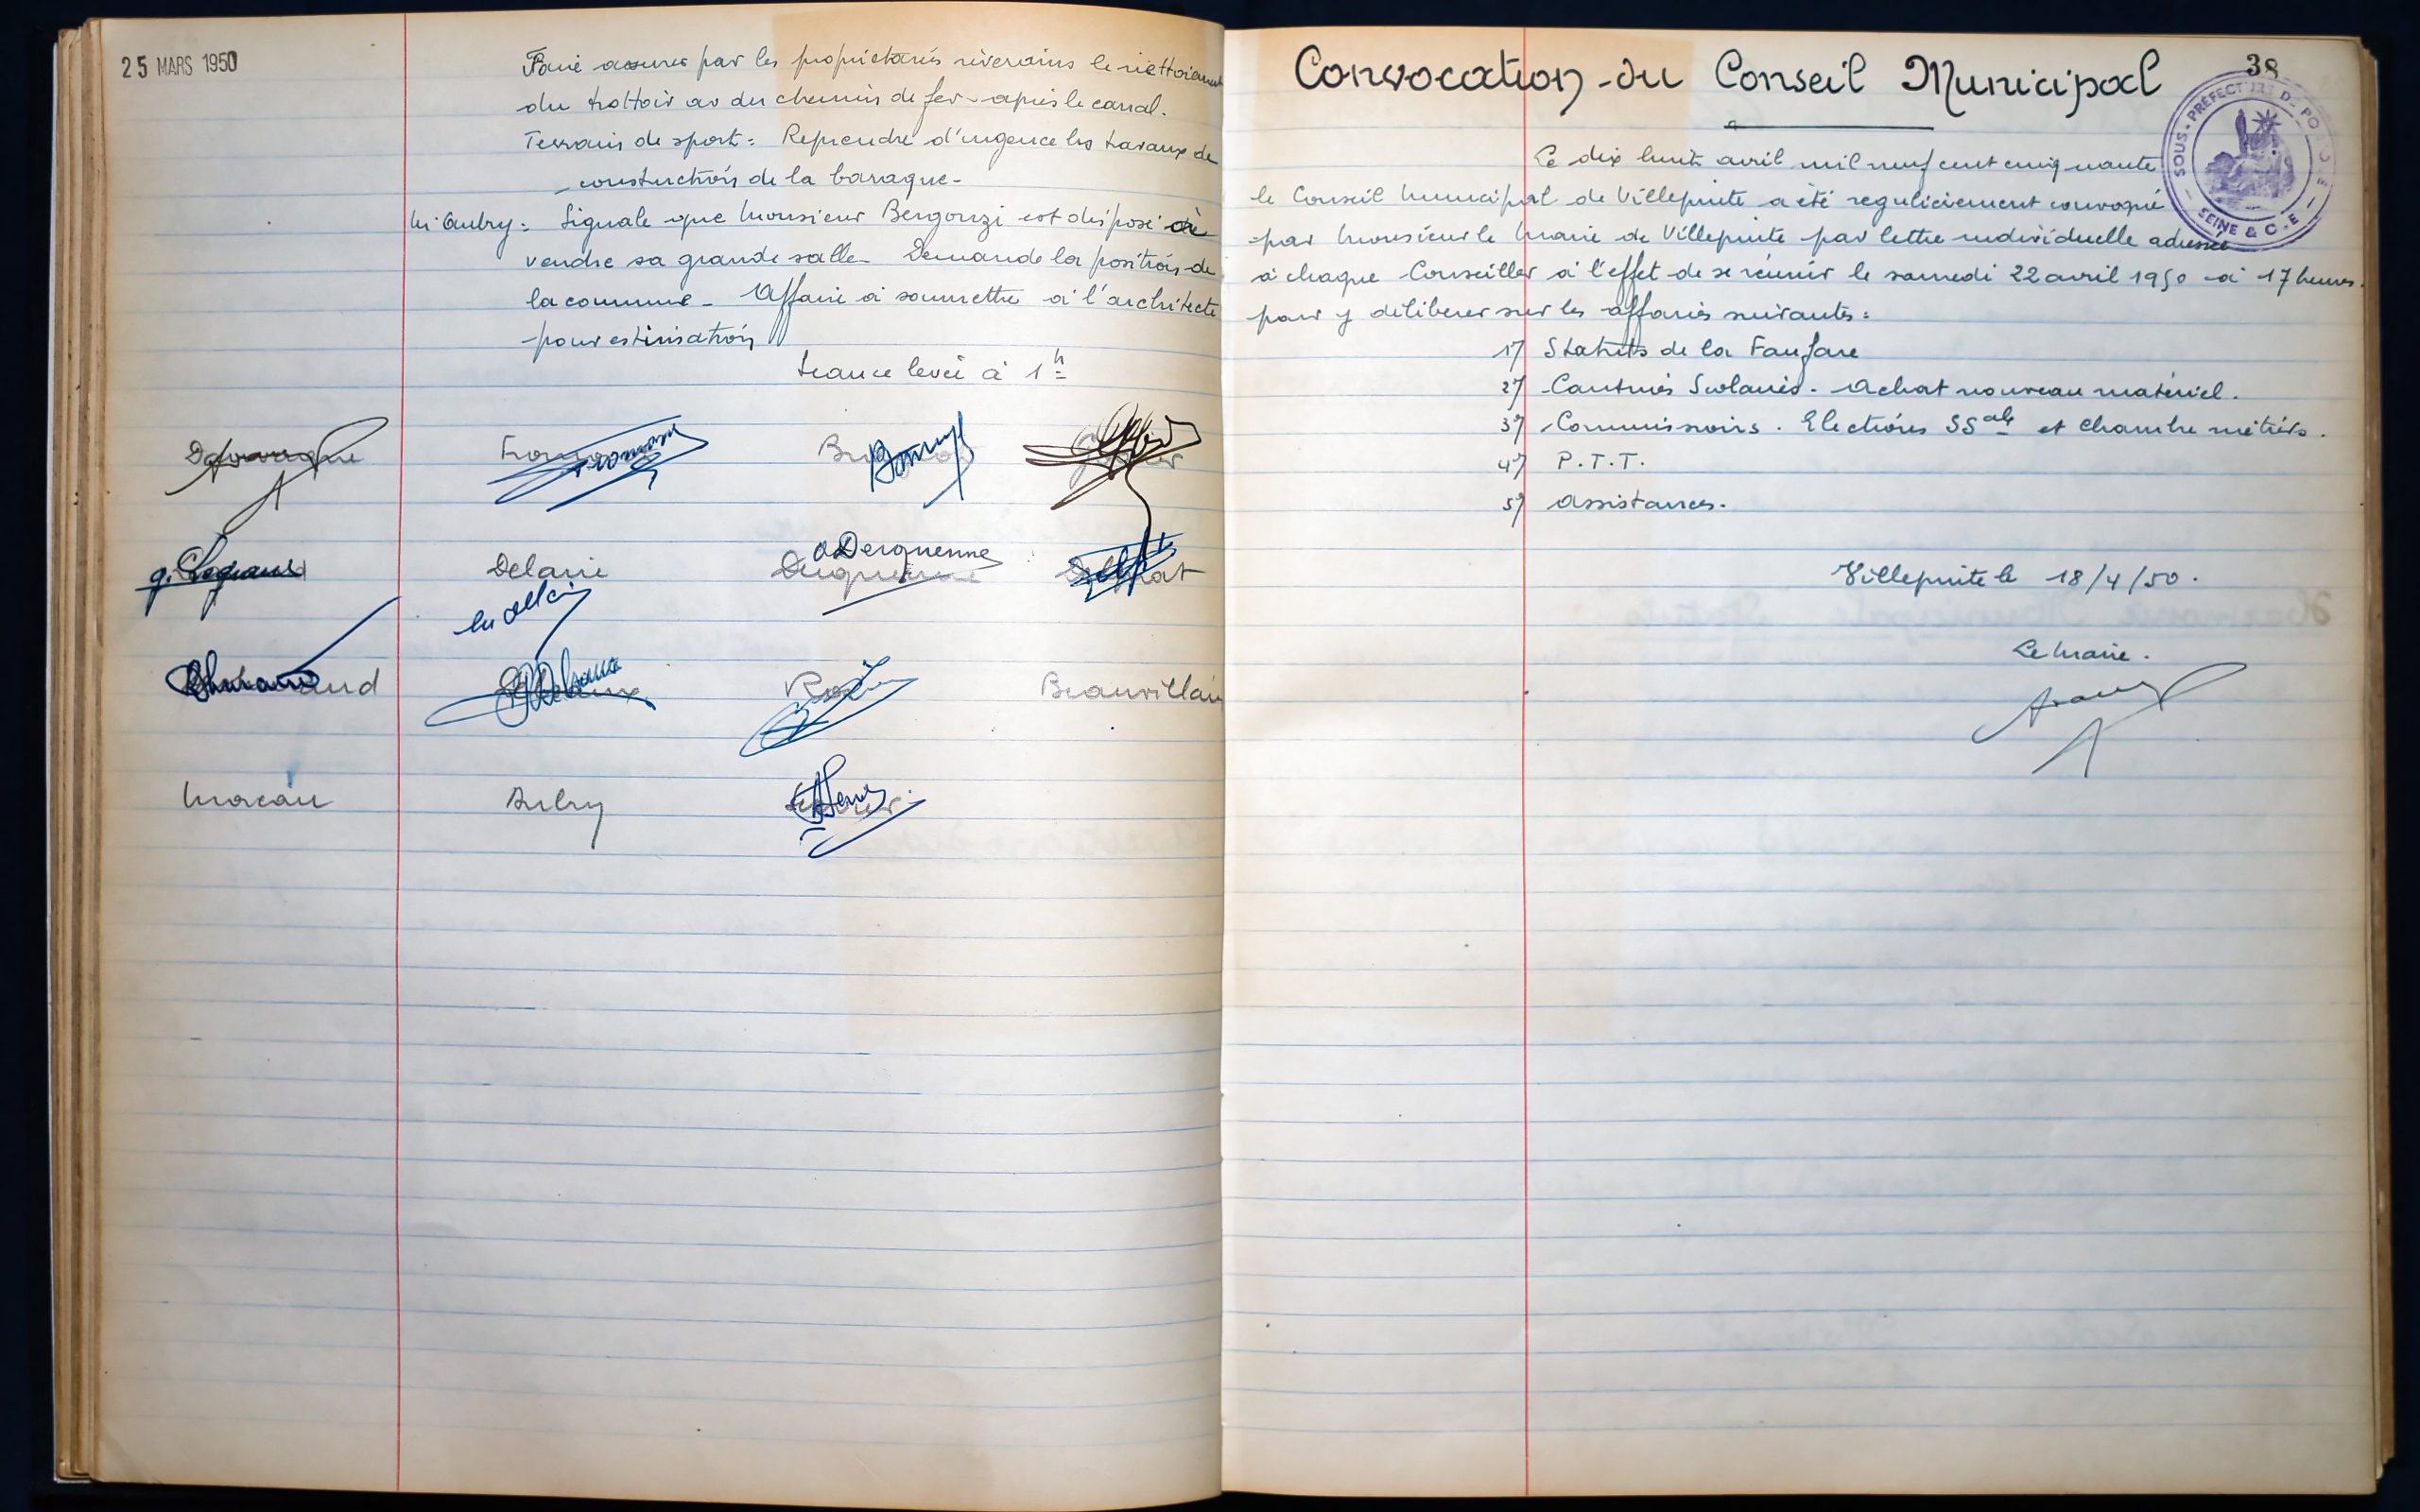 25 MARS 1950
Faire assurer par les propriétaires riverains le nettoiement
du trottoir av du chemin de fer - après le canal.
Terrain de sport : Reprendre d'urgence les travaux de
construction de la baraque -
Mr Aubry : Signale que Monsieur Bergonzi est disposé à
vendre sa grande salle - Demande la position de
la commune - Affaire à soumettre à l'architecte
pour estimation
Séance levée à 1h
g. Legrand
Delaire
a Derquenne
Beauvillain
Moreau
Aubry
38
Convocation du Conseil Municipal
SOUS-PREFECTURE DE PONTOISE
SEINE & O.
Le dix huit avril mil neuf cent cinquante
le Conseil Municipal de Villepinte a été regulièrement convoqué
par Monsieur le Maire de Villepinte par lettre individuelle adressée
à chaque Conseiller à l'effet de se réunir le samedi 22 avril 1950 à 17 heures
pour y délibérer sur les affaires suivantes :
1°/ Statuts de la Fanfare
2°/ Cantines Scolaires - Achat nouveau matériel.
3°/ Commissions . Elections SSale et Chambre métiers.
4°/ P.T.T.
5°/ Assistances.
Villepinte le 18/4/50.
Le Maire.